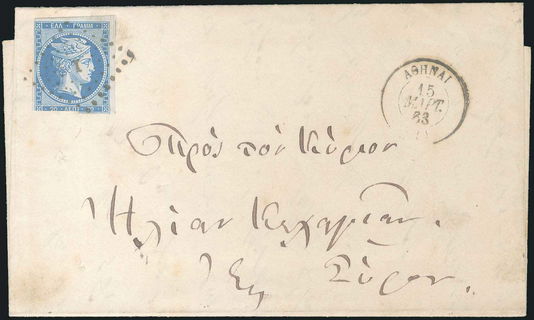 ΕΛΛ. ΓΡΑΜΜ.
20 ΛΕΠ. 20
1
ΑΘΗΝΑΙ
15
ΜΑΡΤ.
63
Πρὸς τὸν Κύριον
Ἠλίαν Κεχαγιᾶν.
Ἐς Σῦρον.